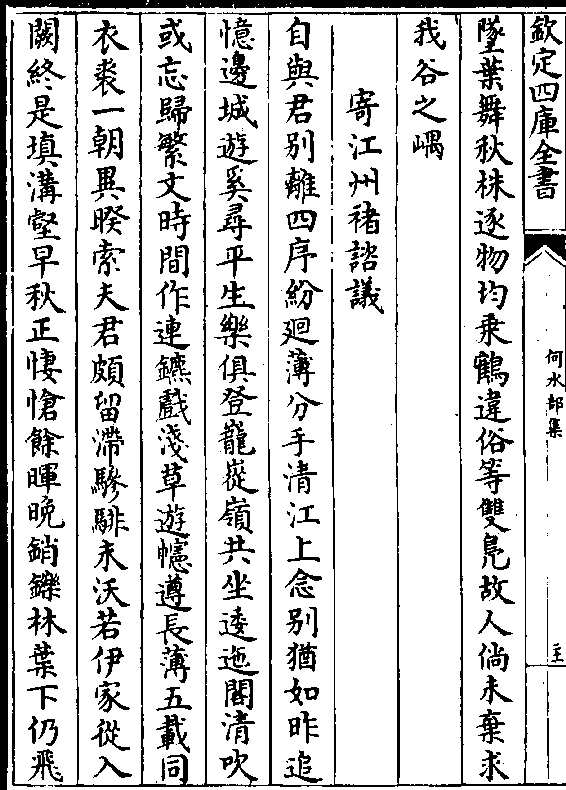 欽定四庫全書
何水部集
墜葉舞秋株逐物均乗鶴違俗等雙鳬故人倘未棄求
我谷之嵎
寄江州褚諮議
自與君别離四序紛廻薄分手清江上念别猶如昨追
憶邊城遊奚尋平生樂俱登巃嵸嶺共坐逶迤閣清吹
或忘歸繁文時間作連鑣戲淺草遊幰遵長薄五載同
衣裘一朝異暌索夫君頗留滯驂騑未沃若伊家從入
闕終是填溝壑早秋正悽愴餘暉晩銷鑠林葉下仍飛